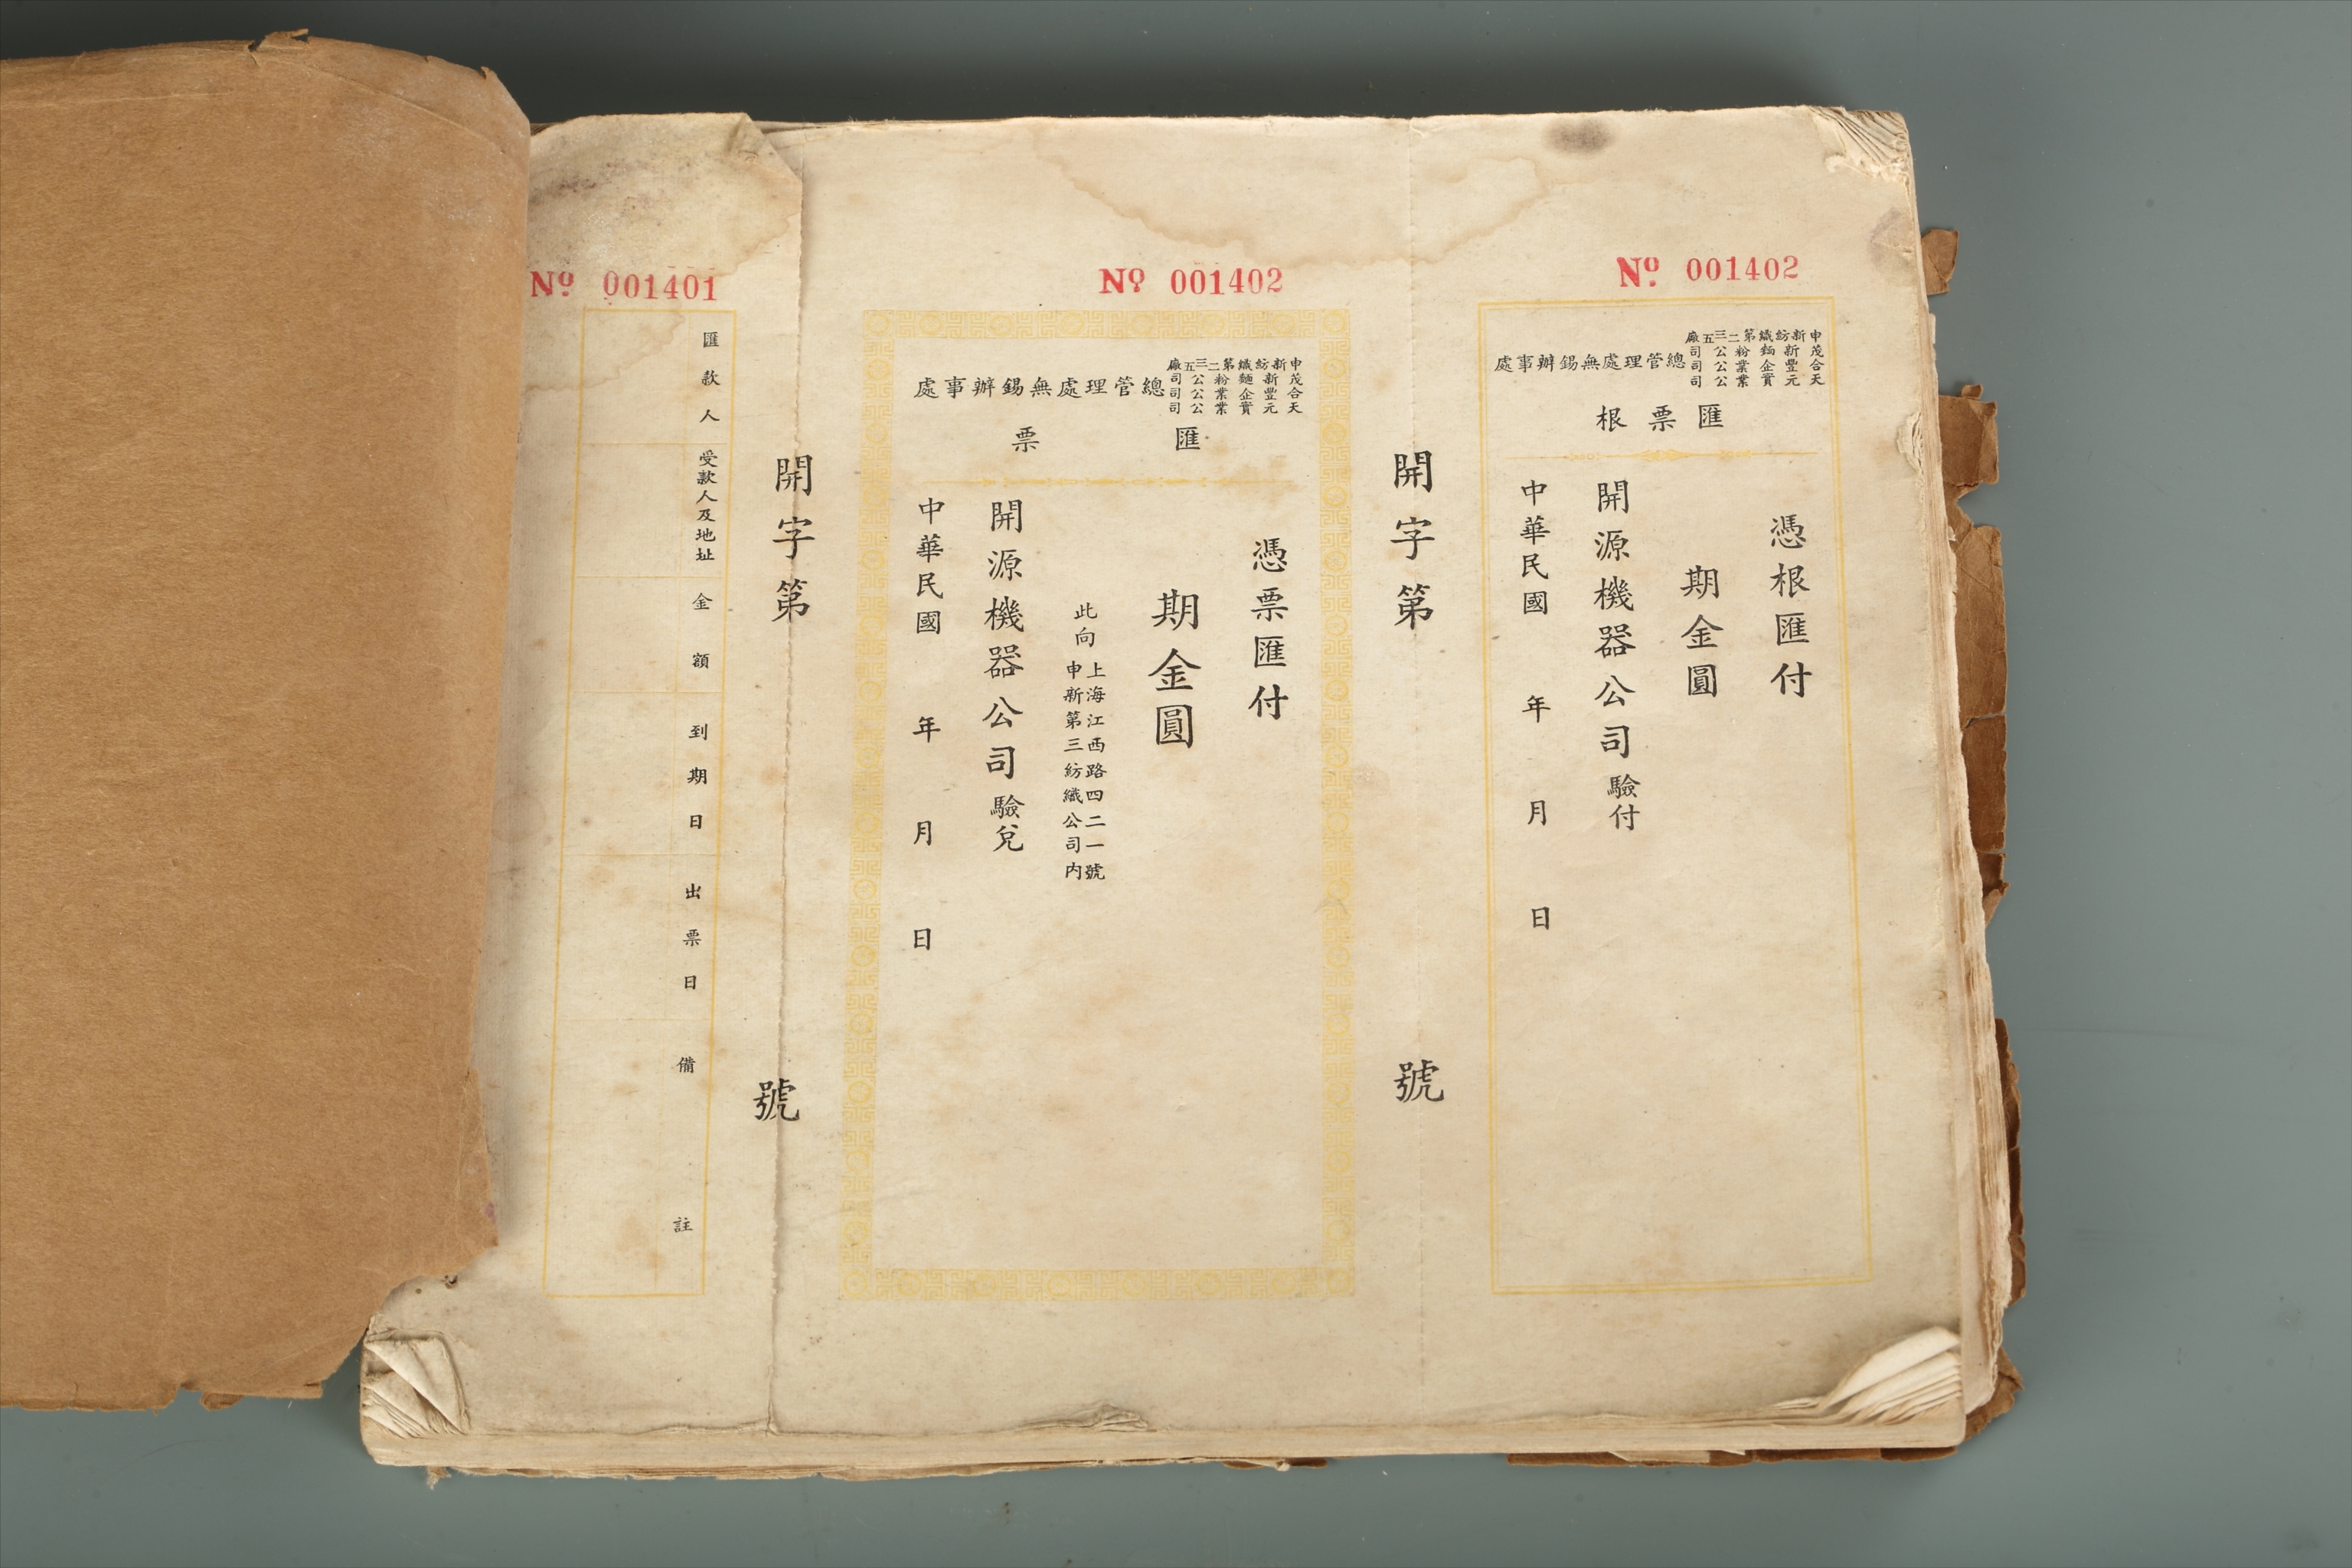 No. 001402
申新紡織第二三五廠
茂新麵粉公司
合豐企業公司
天元實業公司
總管理處無錫辦事處
匯票根
憑根匯付
期金圓
開源機器公司驗付
中華民國 年 月 日
開字第 號
No. 001402
申新紡織第二三五廠
茂新麵粉公司
合豐企業公司
天元實業公司
總管理處無錫辦事處
匯票
憑票匯付
期金圓
此向
上海江西路四二一號
申新第三紡織公司內
開源機器公司驗兌
中華民國 年 月 日
開字第 號
No. 001401
匯款人
受款人及地址
金額
到期日
出票日
備註